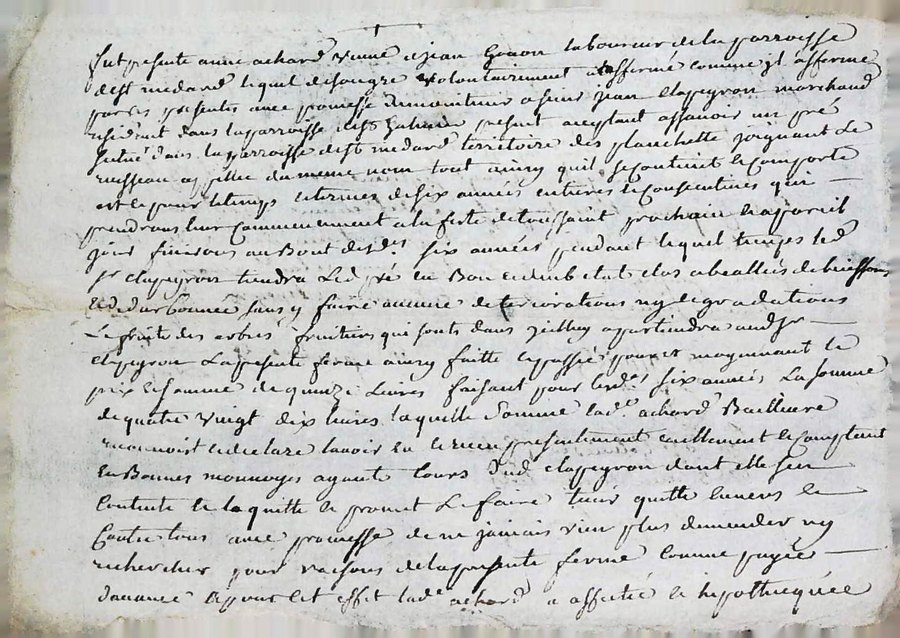 fut presente anne achard veuve de jean Gonon laboureur de la parroisse
de st medard lequel de son gre volontairement a affermé comme jl afferme
par ces presentes avec promesse de maintenir a sieur jean clapeyron marchand
residant dans la parroisse de st Galmier present acceptant assavoir un pré
scitué dans la parroisse de st medard territoire des planchette joignant Le
ruisseau appellé du meme nom tout ainsy quil se contient le comporte
est le pour le temps le termes de six années entieres le consecutives qui
prendront leur commencement a la feste de toussaint prochain le a pareil
jour finiront au Bout desd.es six années pendant lequel temps led
sr clapeyron tiendra Led pré en Bon etat clos a beallés de buissons
sans y faire aucune deteriorations ny degradations
Le fruits des arbres fruitiers qui sonts dans jcelluy apartiendra aud sr
clapeyron La presente ferme ainsy faitte le passée pour et moyennant le
prix le somme de quinze Livres faisant pour lesd.es six années La somme
de quatre vingt dix livres laquelle somme lad.e achard Bailleure
reconnoist le declare lavoir eu le receu presentement reellement le comptant
en Bonnes monnoyes ayants cours dud clapeyron dont elle sen
contente le la quitte le promet Le faire tenir quitte envers le
contre tous avec promesse de ne jamais rien plus demender ny
rechercher pour raisons de la presente ferme comme payée
davance a pour cet effet lad.e achard a affectée le hipothequée